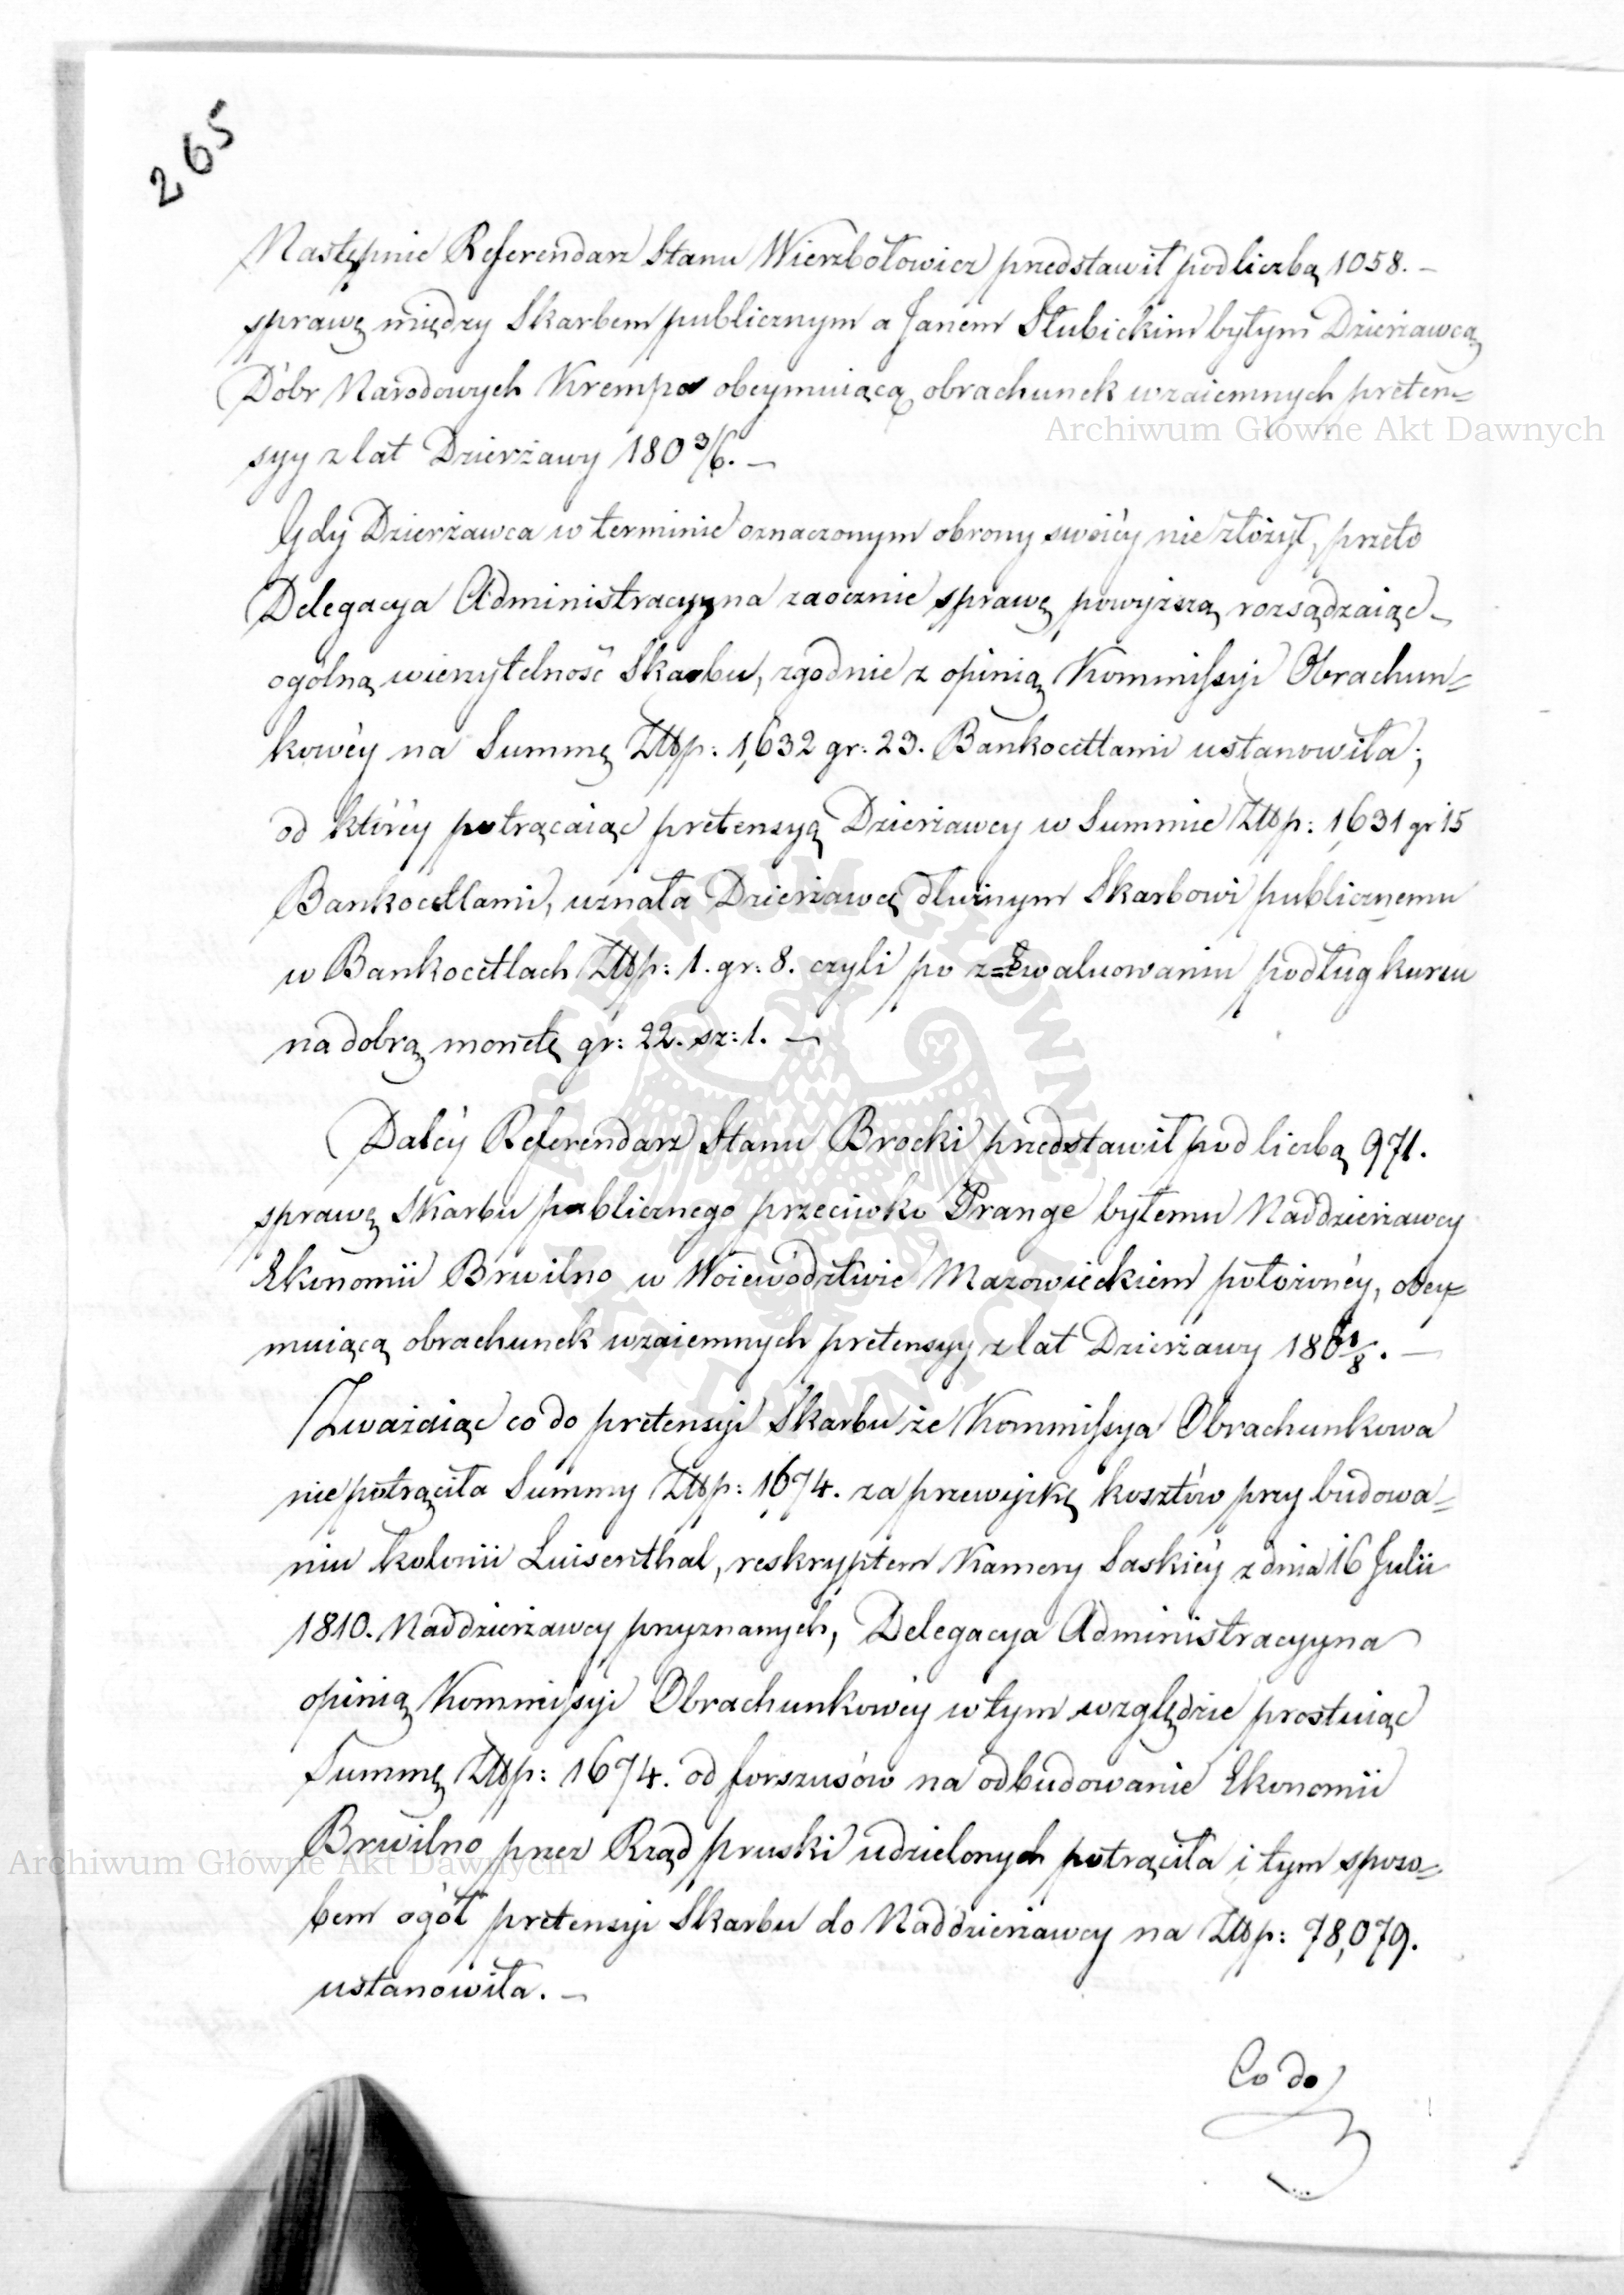 265
Następnie Referendarz Stanu Wierzbołowicz przedstawił pod liczbą 1058. –
sprawę między Skarbem publicznym a Janem Słubickim byłym Dzierżawcą
Dóbr Narodowych Krempa obeymuiącą obrachunek wzaiemnych preten=
syy z lat Dzierżawy 180 3/6. –
Gdy Dzierżawca w terminie oznaczonym obrony swoiéy nie złożył, przeto
Delegacya Administracyyna zaocznie sprawę powyższą rozsądzaiąc –
ogólną wierzytelność Skarbu, zgodnie z opinią Kommissyi Obrachun=
kowéy na Summę Złłp: 1,632 gr: 23. Bankocetlami ustanowiła;
od któréy potrącaiąc pretensyą Dzierżawcy w Summie Złłp: 1,631 gr 15
Bankocetlami, uznała Dzierżawcę dłużnym Skarbowi publicznemu
w Bankocetlach Złłp: 1. gr: 8. czyli po zewaluowaniu podług kursu
na dobrą monetę gr: 22. sz: 1. –
Daléy Referendarz Stanu Brocki przedstawił pod liczbą 971.
sprawę Skarbu publicznego przeciwko Prange byłemu Naddzierżawcy
Ekonomii Brwilno w Woiewództwie Mazowieckiem położonéy, obey=
muiącą obrachunek wzaiemnych pretensyy z lat Dzierżawy 180 1/8. –
Zważaiąc co do pretensyi Skarbu że Kommissya Obrachunkowa
nie potrąciła Summy Złłp: 1,674. za przewyżkę kosztów przy budowa=
niu kolonii Luisenthal, reskryptem Kamery Saskiéy z dnia 16 Julii
1810. Naddzierżawcy przyznanych, Delegacya Administracyyna
opinią Kommissyi Obrachunkowéy w tym względzie prostuiąc
Summę Złłp: 1674. od forszusów na odbudowanie Ekonomii
Brwilno przez Rząd pruski udzielonych potrąciła i tym sposo=
bem ogół pretensyi Skarbu do Naddzierżawcy na Złłp: 78,079.
ustanowiła. –
Co do
Archiwum Główne Akt Dawnych
Archiwum Główne Akt Dawnych
ARCHIWUM GŁÓWNE
AKT DAWNYCH